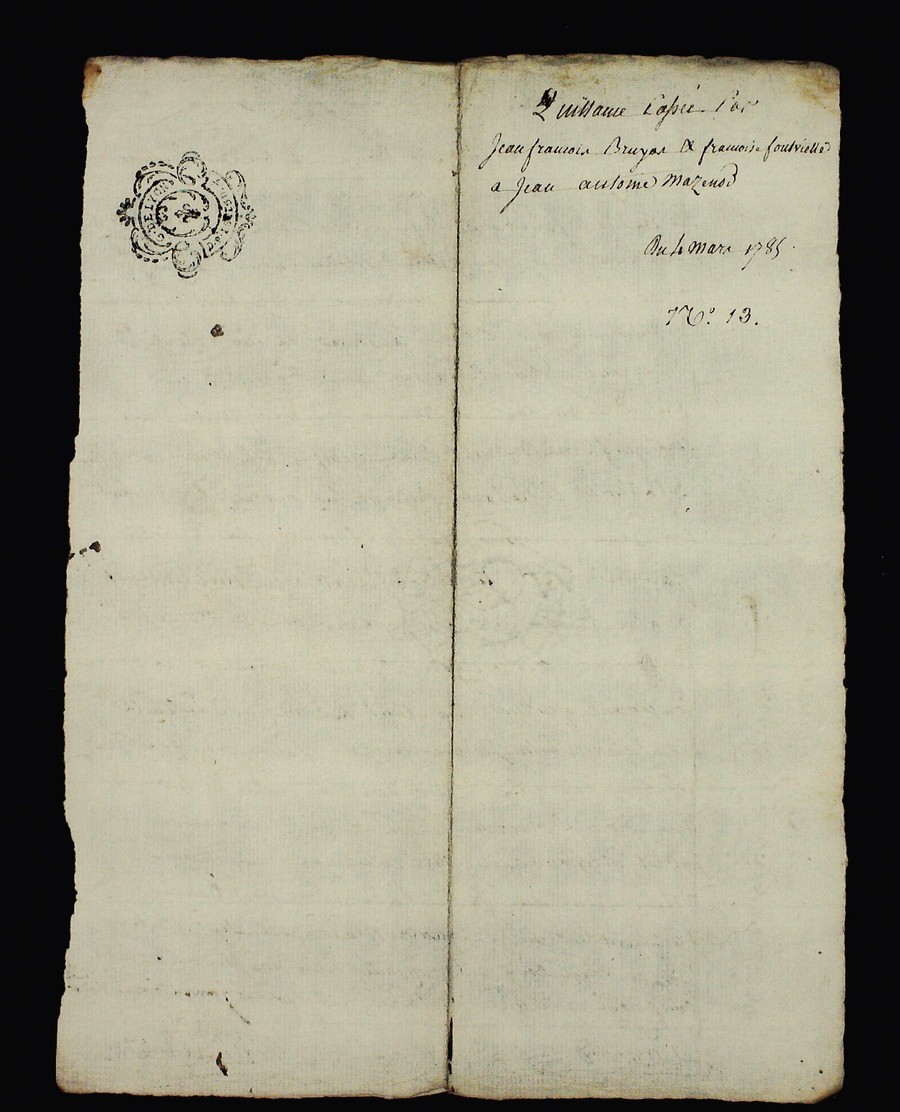 G. DE LYON
Quittance passée Par
Jean francois Bruyas & francoise fontvielle
a Jean antoine Mazenod
Du 4 Mars 1785
N°. 13.